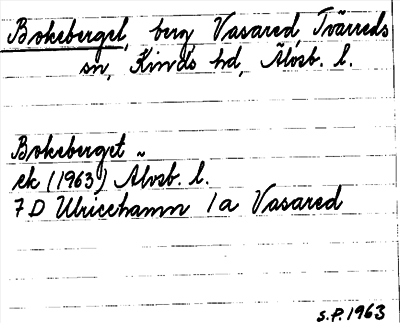 Bokeberget, berg Vasared, Tvärreds
sn, Kinds hd, Älvsb. l.
Bokeberget "
ek (1963) Älvsb. l.
7 D Ulricehamn 1a Vasared
S.P. 1963